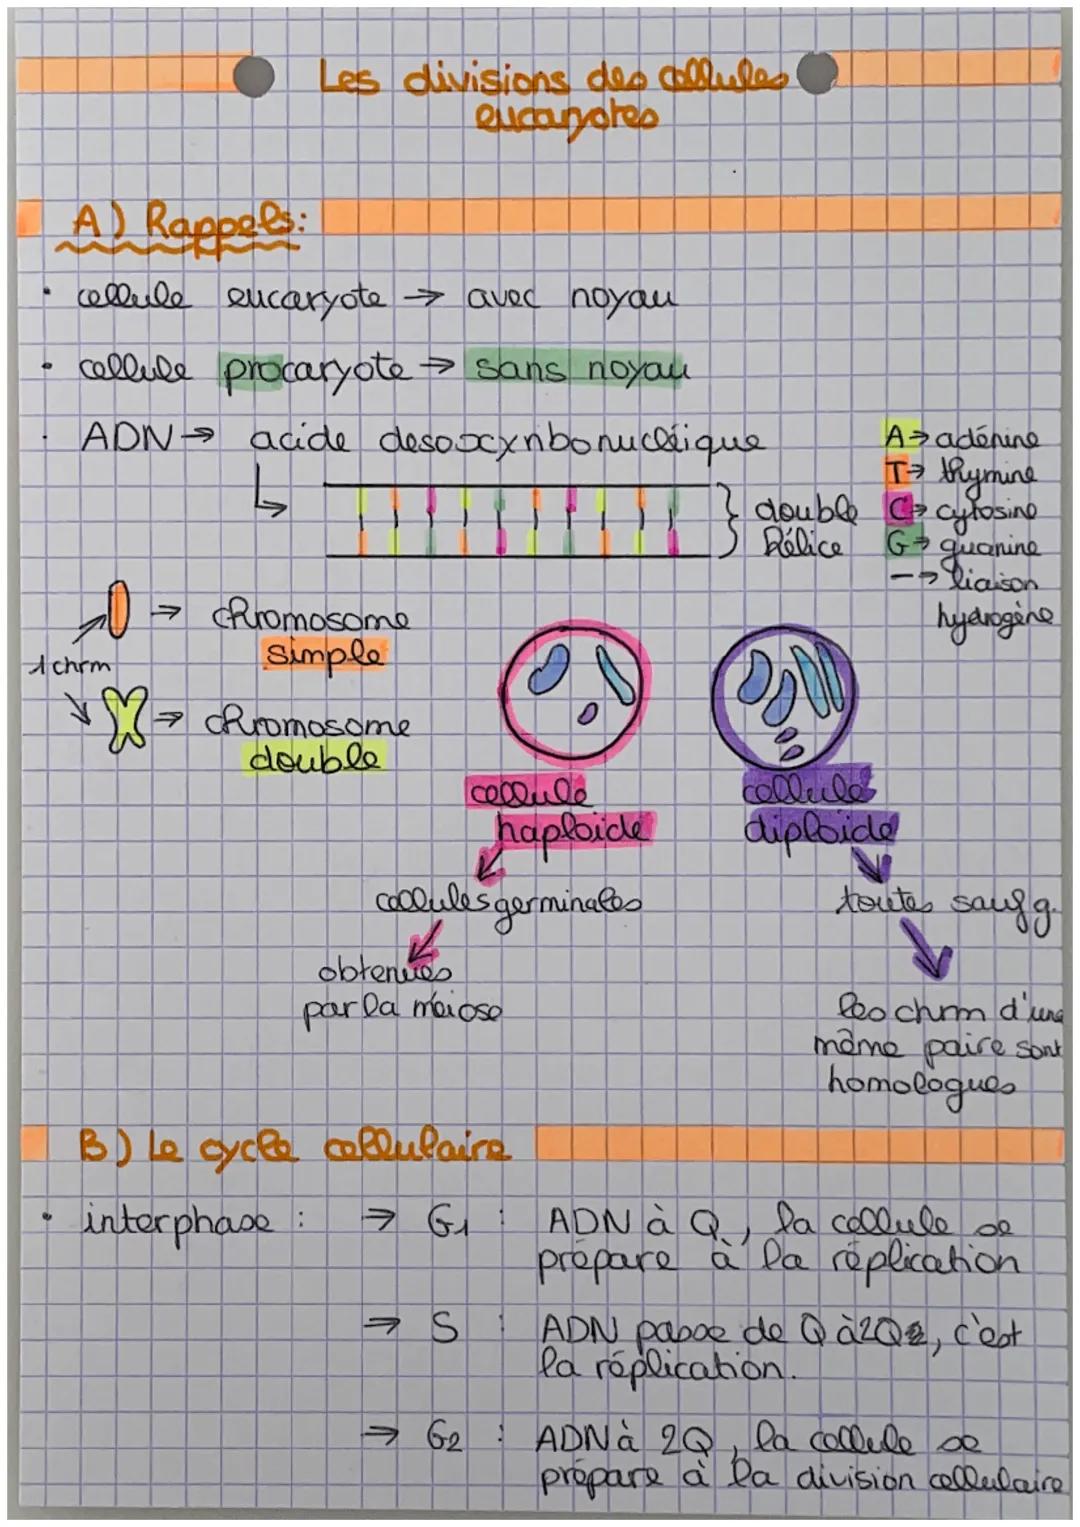 Les divisions des cellules
eucaryotes
A) Rappels:
• cellule eucaryote → avec noyau
• cellule procaryote → sans noyau
• ADN → acide desoxyribonucléique
double
hélice
A → adénine
T → thymine
C → cytosine
G → guanine
-→ liaison
hydrogène
1 chrm
→ chromosome
simple
→ chromosome
double
cellule
haploide
cellules germinales
obtenues
par la méiose
cellule
diploide
toutes sauf g.
les chrm d'une
même paire sont
homologues
B) Le cycle cellulaire
• interphase : → G1 : ADN à Q, la cellule se
prépare à la réplication
→ S : ADN passe de Q à 2Q, c'est
la réplication.
→ G2 : ADN à 2Q, la cellule se
prépare à la division cellulaire